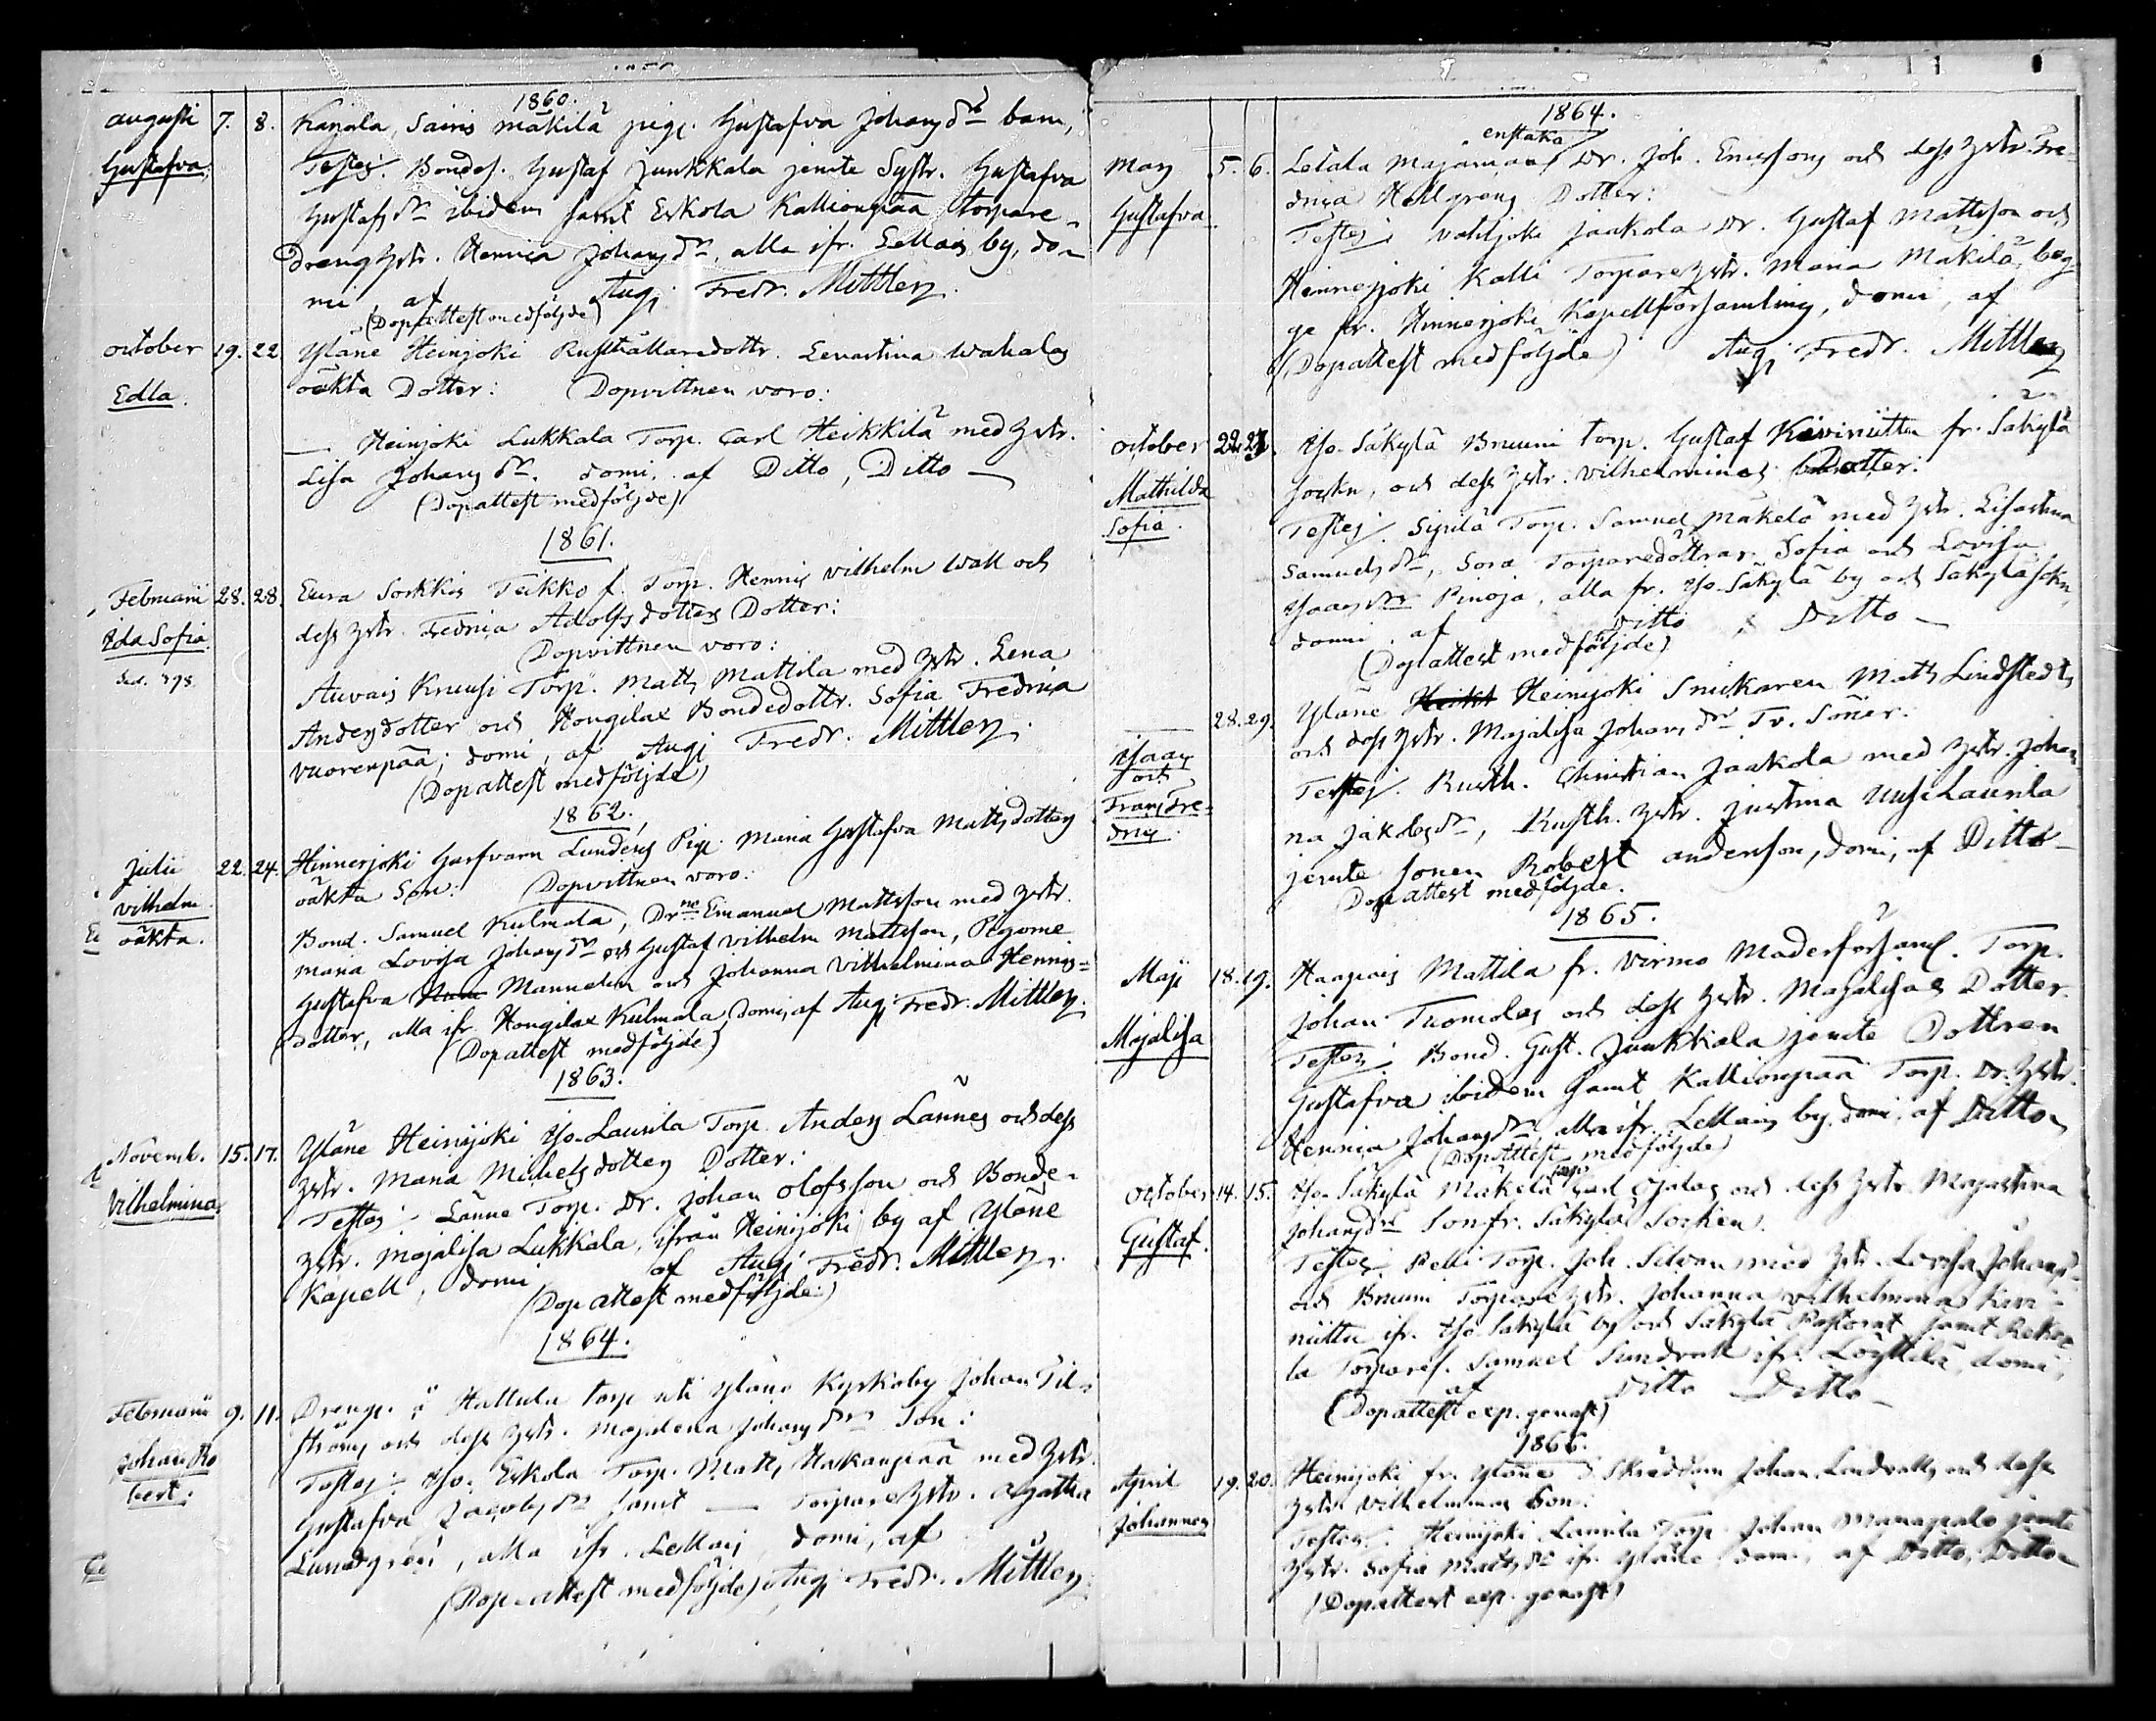 1860.
augusti 7. 8. Karjala, Sairis mäkilä pig. Gustafva Johansdr barn,
Gustafva. Testes: Bondes. Gustaf Junkkala jemte Systr. Gustafva
Gustafsdr ibidem samt Eskola Kallionpää torpare
dreng hstr. Henrica Johansdr, alla ifr. Lellais by, do-
mi af Aug. Fredr. Mittler.
(Dopattest medföljde)
october 19. 22. Yläne Heinjoki Rusthållaredottr. Lenastina Wahalas
Edla. oäkta Dotter: Dopvittnen voro:
— Heinjoki Lukkala Torp. Carl Heikkilä med hstr.
Lisa Johansdr. domi. af Ditto, Ditto —
(Dopattest medföljde)
1861.
Februarii 28. 28. Eura Sorkkis Teikko f. Torp. Henric vilhelm Wall och
Ida Sofia. dess hstr. Fedrica Adolfsdotters Dotter:
Dopvittnen voro:
Auvais Knuusi Torp. Matts Mattila med hstr. Lena
Andersdotter och Hongilax Bondedottr. Sofia Fredrica
Vuorenpää; domi, af Aug. Fredr. Mittler.
(Dopattest medföljde)
1862.
Julii 22. 24. Hinnerjoki Garfvarn Lundens Pig. Maria Gustafva Mattsdotters
vilhelm oäkta Son: Dopvittnen voro:
oäkta. Bond. Samuel Kulmala, Drne Emanuel Mattsson med hstr.
Maria Lovisa Johansdr och Gustaf Vilhelm Mattsson, Pigorne
Gustafva Mannelin och Johanna Vilhelmina Henrics-
dotter, alla ifr. Hongilax Kulmala, domi, af Aug. Fredr. Mittler.
(Dopattest medföljde)
1863.
Novemb. 15. 17. Yläne Heinijoki Iso-Laurila Torp. Anders Lännes och dess
Vilhelmina hstr. Maria Michelsdotters Dotter:
Testes: Länne Torp. Dr. Johan Olofsson och Bonde-
hstr. Majalisa Lukkala, ifrån Heinijoki by af Yläne
Kapell, domi af Aug. Fredr. Mittler.
(Dopattest medföljde)
1864.
Februarii 9. 11. Drenge. i Hallula torp uti Yläne Kyrkoby Johan Til-
Johan Ro ströms och dess hstr. Majalena Johansdrs Son:
bert. Testes: Iso-Eskola Torp. Matts Hakanpää med hstr.
Gustafva Jacobsdr samt — Torpare hstr. Agatha
Lundgren, alla ifr. Lellais, domi, af
(Dopattest medföljde) Aug. Fredr. Mittler
1864.
enstaka
Maij 5. 6. Letala Majamaa, Dr. Joh. Ericssons och dess hstr. Fre-
Gustafva drica Hellgrens Dotter:
Testes: Vahljoki Jaakola Dr. Gustaf Mattsson och
Hinnerjoki Kalli Torpare hstr. Maria Mäkilä, beg-
ge fr. Hinnerjoki Kapellförsamling, domi, af
(Dopattest medföljde) Aug. Fredr. Mittler
october 22. 23. Iso-Säkylä Bruuni torp. Gustaf Kiviniittu fr. Säkylä
Mathilda Sockn, och dess hstr. Vilhelminas Dotter:
Sofia. Testes: Sipilä Torp. Samuel Mäkelä med hstr. Lisastina
Samuelsdr, Sora Torparedöttrar Sofia och Lovisa
Isaacsdr Pinoja, alla fr. Iso-Säkylä by och Säkylä sokn,
domi. af Ditto & Ditto —
(Dopattest medföljde)
— 28. 29. Yläne Heinijoki Snickaren Matts Lindstedts
Isaac och dess hstr. Majalisa Johansdr Tv. Söner:
och Testes: Rusth. Christian Jaakola med hstr. Johan-
Frans Fre- na Jakobsdr, Rusth. hstr. Justina UusiLaurila
dric. jemte Sonen Robert Andersson, domi, af Ditto —
Dopattest medföljde.
1865.
Maji 18. 19. Haapais Mattila fr. Virmo Moderförsaml. Torp.
Majalisa Johan Tuomolas och dess hstr. Majalisas Dotter.
Testes: Bond. Gust. Junkkala jemte Dottren
Gustafva ibidem samt Kallionpää Torp. Dr. hstr.
Henrica Johansdr, alla ifr. Lellais by. domi. af Ditto
(Dopattest medföljde)
October 14. 15. Iso-Säkylä Mäkelä torp. Carl Ojalas och dess hstr. Majastina
Gustaf. Johansdr Son fr. Säkylä Socken.
Testes: Pelli Torp. Joh. Silvan med hstr. Lovisa Johansdr
och Bruuni Torpare hstr. Johanna Vilhelmina Kivi-
niittu ifr. Iso Säkylä by och Säkylä Pastorat samt
la Torpares. Samuel Sundvall ifr. Löyttilä, domi,
af Ditto Ditto —
(Dopattest exp. genast)
1866.
April 19. 20. Heinijoki fr. Yläne Skräddarn Johan Lindvalls och dess
Johannes hstr. Vilhelminas Son:
Testes: Heinijoki Laurila Torp. Johan Manapalo jemte
hstr. Sofia Mattsdr ifr. Yläne, domi, af Ditto, Ditto
(Dopattest exp. genast)